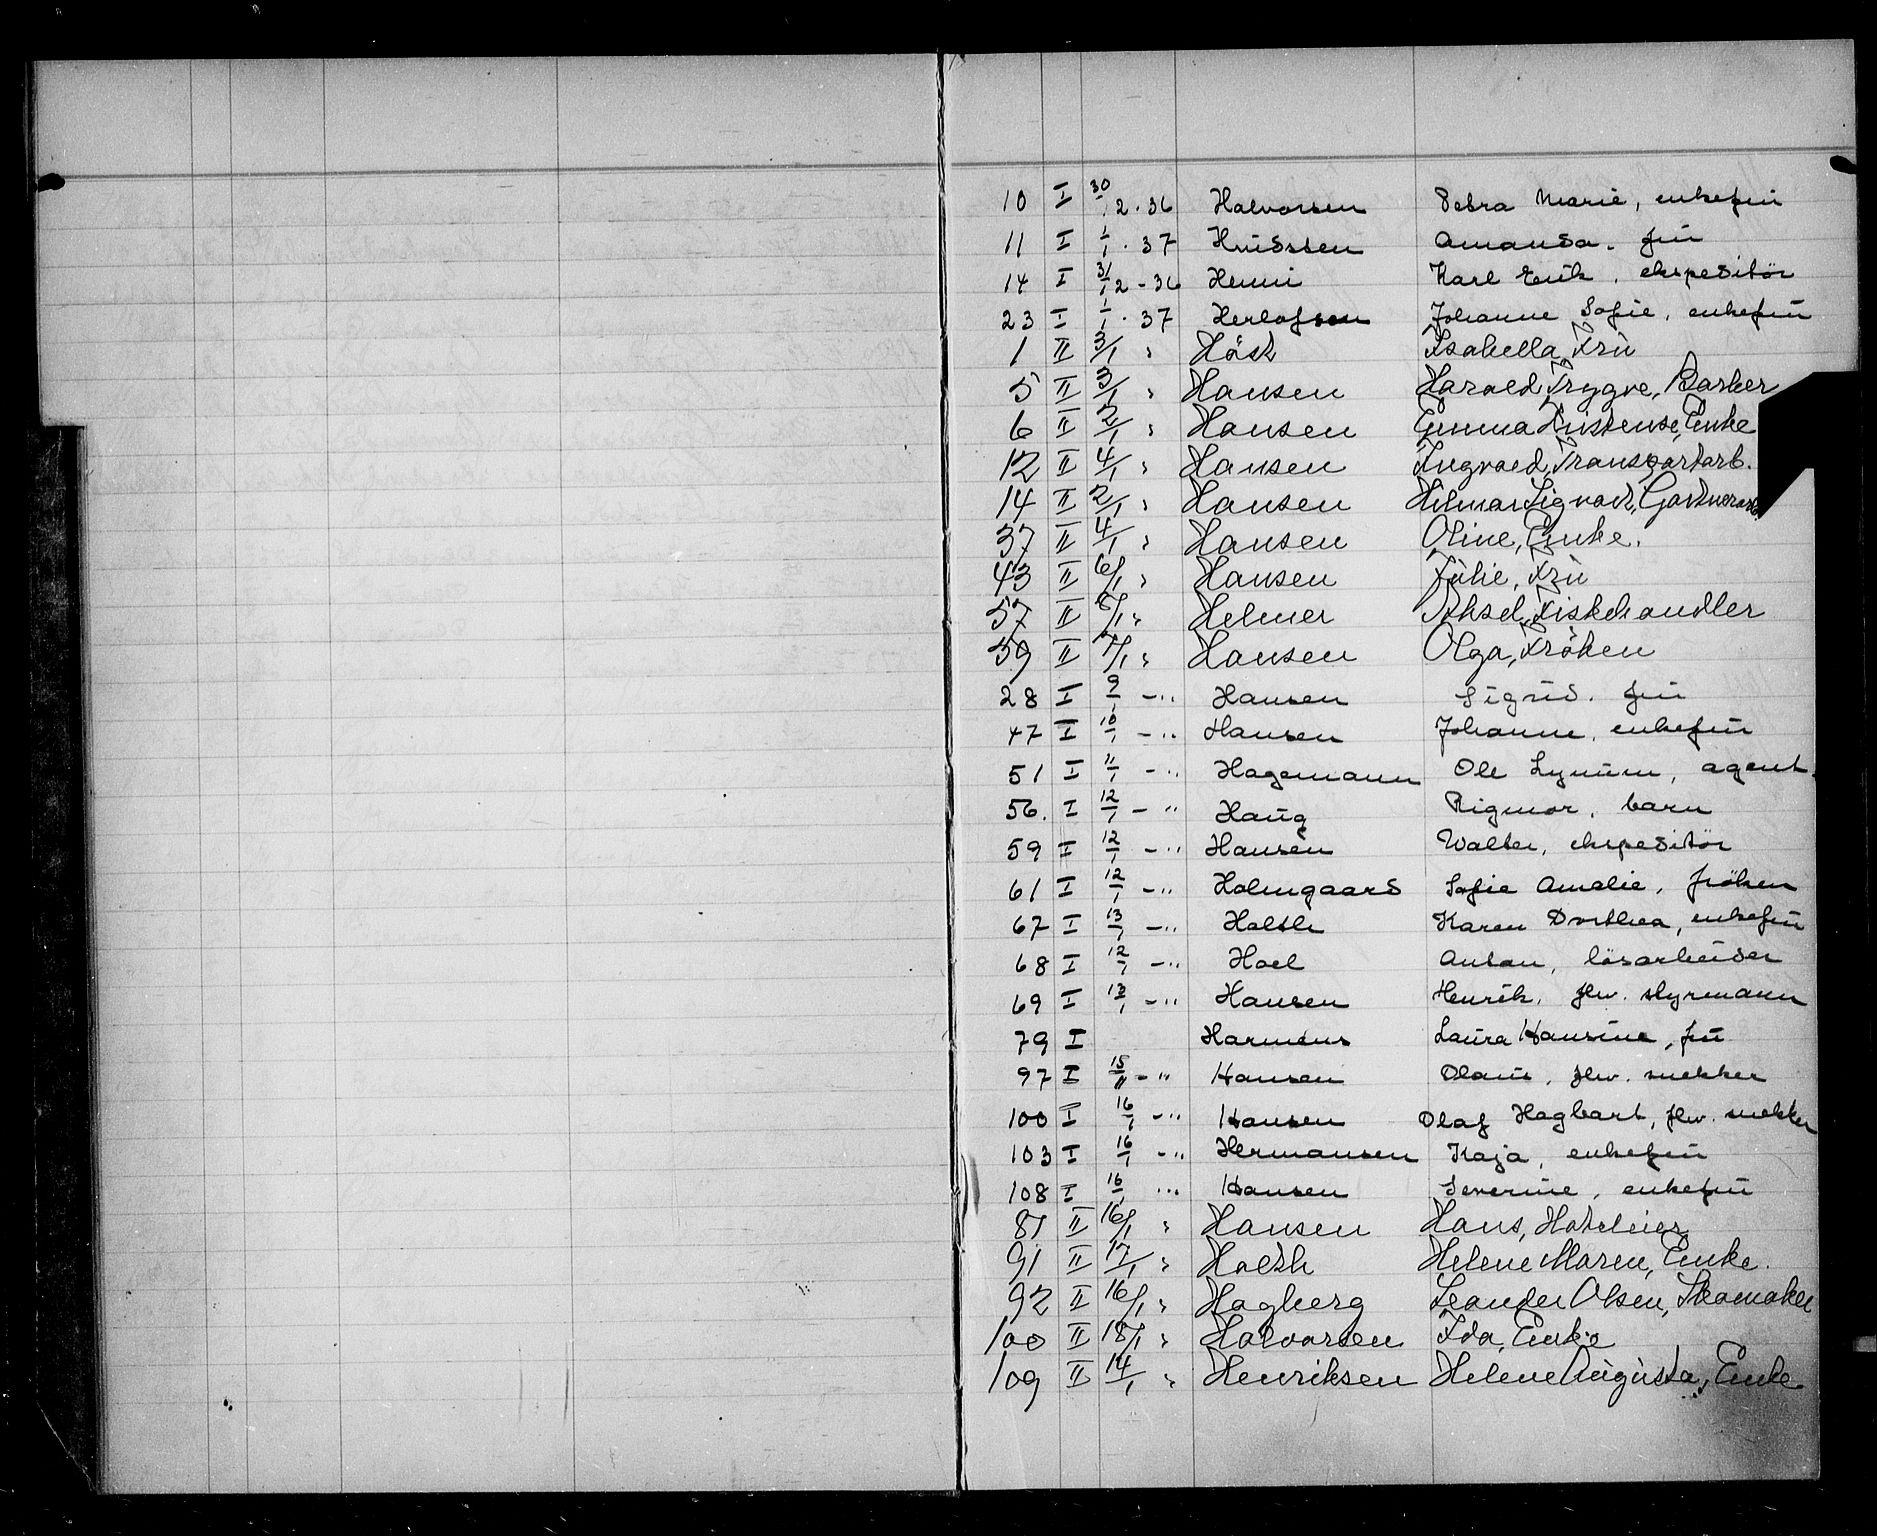 10 I 30/12-36 Halvorsen Petra Marie, enkefrü
11 I 1/1-37 Knüdsen Amanda. frü
14 I 31/12-36 Henni Karl Erik. ekspeditör
23 I 1/1-37 Herlofsen Johanne Sofie, enkefrü
1 II 3/1 " Höst Isabella, Frü
5 II 3/1 " Hansen Harald Trygve, Barber
6 II 2/1 " Hansen Emma Kristense, Enke
12 II 4/1 " Hansen Ingvald, Transportarb.
14 II 2/1 " Hansen Hilmar Sigvart, Gartnerarb.
37 II 4/1 " Hansen Oline, Enke.
43 II 6/1 " Hansen Jülie, Frü
57 II 8/1 " Helmer Aksel, Fiskehandler
59 II 7/1 " Hansen Olga, Fröken
28 I 9/1 -" Hansen Sigrid. frü
47 I 10/1 -" Hansen Johanne, enkefrü
51 I 11/1 -" Hagemann Ole Lynüm, agent.
56. I 12/1 -" Haüg Rigmor, barn
59 I 12/1 -" Hansen Walter, ekspeditör
61 I 12/1 -" Holmgaard Sofie Amalie, fröken
67 I 13/1 -" Holth Karen Dorthea, enkefrü
68 I 12/1 -" Hoel Anton, lösarbeider
69 I 13/1 -" Hansen Henrik, fhv. styrmann
79 I Harmens Laüra Hansine, frü
97 I 15/1 -" Hansen Olaüs, fhv. snekker
100 I 16/1 -" Hansen Olaf Hagbart, fhv. snekker
103 I 16/1 -" Hermansen Kaja, enkefrü
108 I 16/1 -" Hansen Severine, enkefrü
81 II 16/1 " Hansen Hans, Hoteleier
91 II 17/1 " Holth Helene Maren, Enke.
92 II 16/1 " Hagberg Leander Olsen, Skomaker
100 II 18/1 " Halvorsen Ida, Enke
109 II 14/1 " Henriksen Helene Aügüsta, Enke